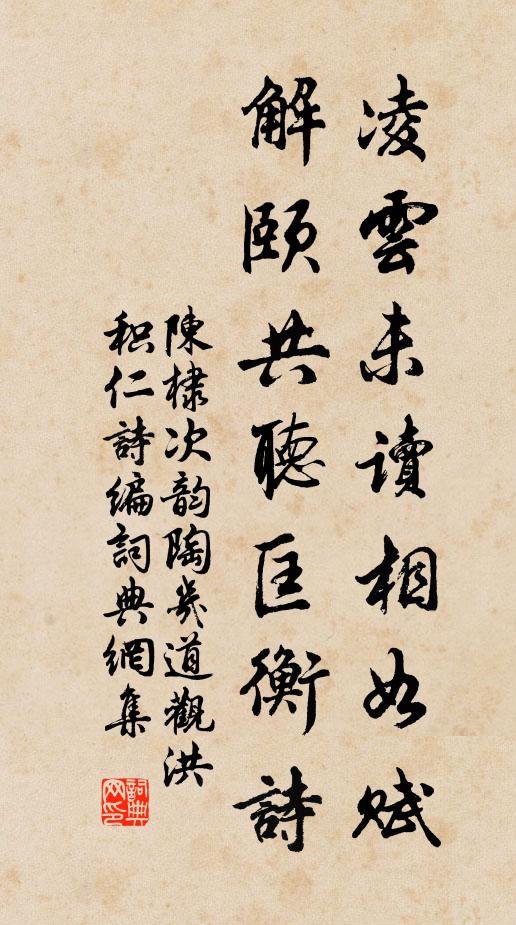 凌雲未讀相如賦
解頤共聽匡衡詩
陳棣次韵陶幾道觀洪
积仁詩編詞典網集
詞典网印